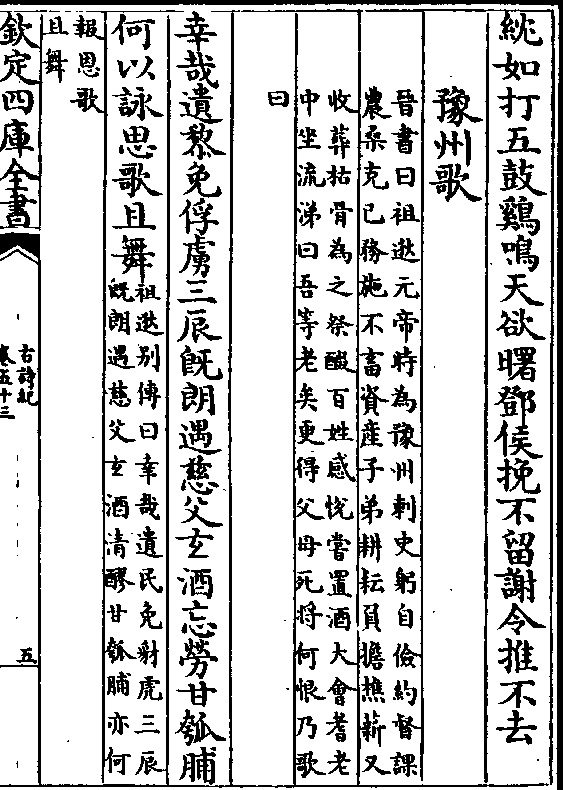 紞如打五鼓鷄鳴天欲曙鄧侯挽不留謝令推不去
豫州歌
晉書曰祖逖元帝時為豫州刺史躬自儉約督課
農桑克已務施不畜資産子弟耕耘負擔樵薪又
收葬枯骨為之祭醊百姓感悅嘗置酒大會耆老
中坐流涕曰吾等老矣更得父母死將何恨乃歌
曰
幸哉遺黎免俘虜三辰旣朗遇慈父玄酒忘勞甘瓠脯
何以詠思歌且舞
祖逖别傳曰幸哉遺民免豺虎三辰
旣朗遇慈父玄酒清醪甘瓠脯亦何
報恩歌
且舞
欽定四庫全書
古詩紀
卷五十三
五